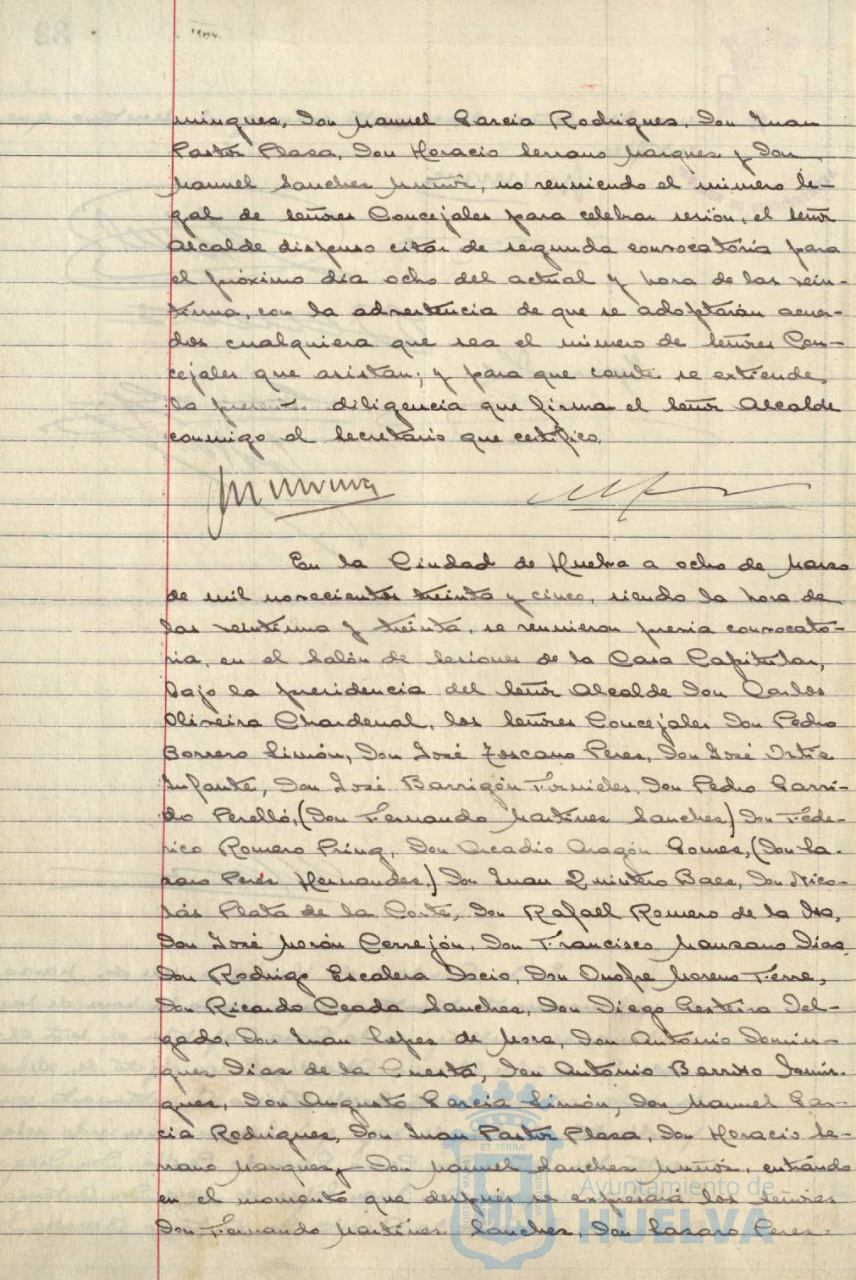 mingues, Don Manuel Garcia Rodrigues, Don Juan
Pastor Plasa, Don Horacio Serrano Marques y Don
Manuel Sanches Muñoz, no reuniendo el número le-
gal de señores Concejales para celebrar sesión, el señor
Alcalde dispuso citar de segunda convocatoria para
el próximo dia ocho del actual y hora de las vein-
tiuna, con la advertencia de que se adoptarán acuer-
dos cualquiera que sea el número de señores Con-
cejales que asistan; y para que conste se extiende
la presente diligencia que firma el señor Alcalde
conmigo el Secretario que certifico.
En la Ciudad de Huelva a ocho de Marso
de mil novecientos treinta y cinco, siendo la hora de
las veintiuna y treinta, se reunieron previa convocato-
ria, en el Salón de Sesiones de la Casa Capitular,
bajo la presidencia del señor Alcalde Don Carlos
Oliveira Chardenal, los señores Concejales Don Pedro
Borrero Limón, Don José Toscano Peres, Don José Ortiz
Infante, Don José Barrigón Fornieles, Don Pedro Garri-
do Perelló, (Don Fernando Martines Sanches) Don Fede-
rico Romero Pring, Don Arcadio Aragón Gomes, (Don La-
saro Peres Hernandes,) Don Juan Quintero Baes, Don Nico-
lás Plata de la Corte, Don Rafael Romero de la Osa,
Don José Morón Cerrejón, Don Francisco Mansano Dias,
Don Rodrigo Escalera Docio, Don Onofre Moreno Ferre,
Don Ricardo Ceada Sanches, Don Diego Gesteira Del-
gado, Don Juan Lopes de Mora, Don Antonio Domin-
gues Dias de la Cuesta, Don Antonio Barriso Domin-
gues, Don Augusto Garcia Limón, Don Manuel Gar-
cia Rodrigues, Don Juan Pastor Plasa, Don Horacio Se-
rrano Marques y Don Manuel Sanches Muñoz, entrando
en el momento que después se expresará los señores
Don Fernando Martines Sanches, Don Lasaro Peres
Ayuntamiento de
HUELVA